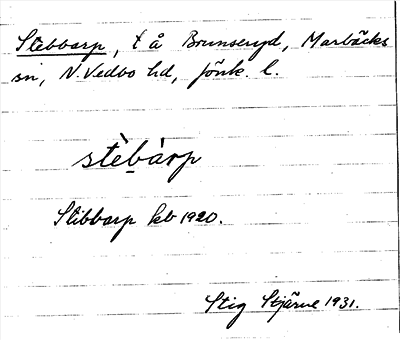 Stebbarp, t å Brunseryd, Marbäcks
sn, N. Vedbo hd, Jönk. l.
stèbàrp
Stibbarp kb 1920.
Stig Stjärne 1931.